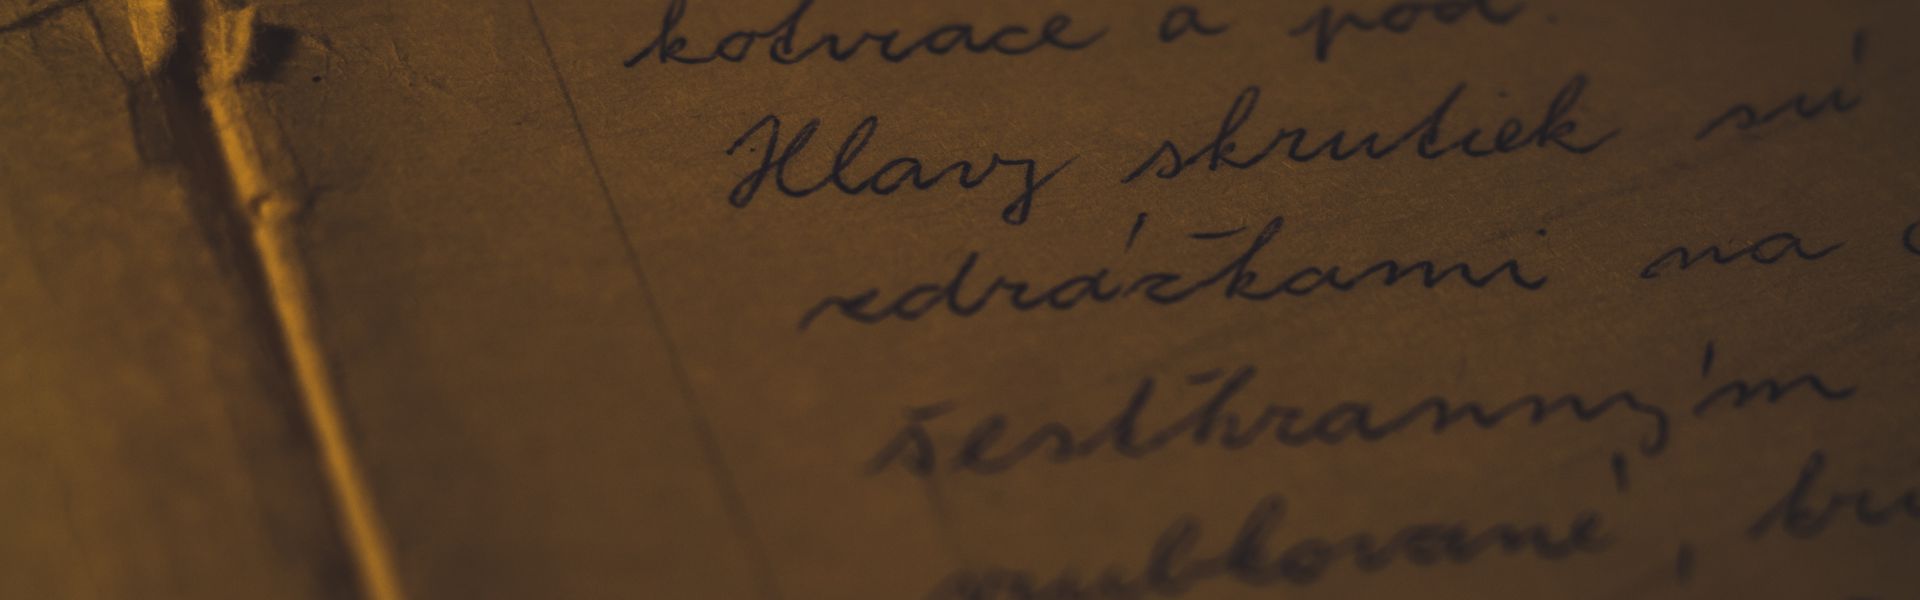 kotvrace a pod.
Hlavy skrutiek sú
zdrážkami na
šesťhranným
vrubkované,